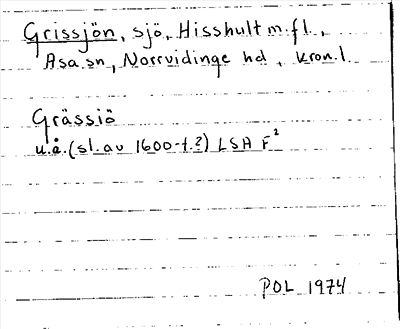 Grissjön, sjö, Hisshult m.fl.,
Asa sn, Norrvidinge hd, kron.l.
Grässiö
u.å. (sl. av 1600-t.?) LSA F²
POL 1974